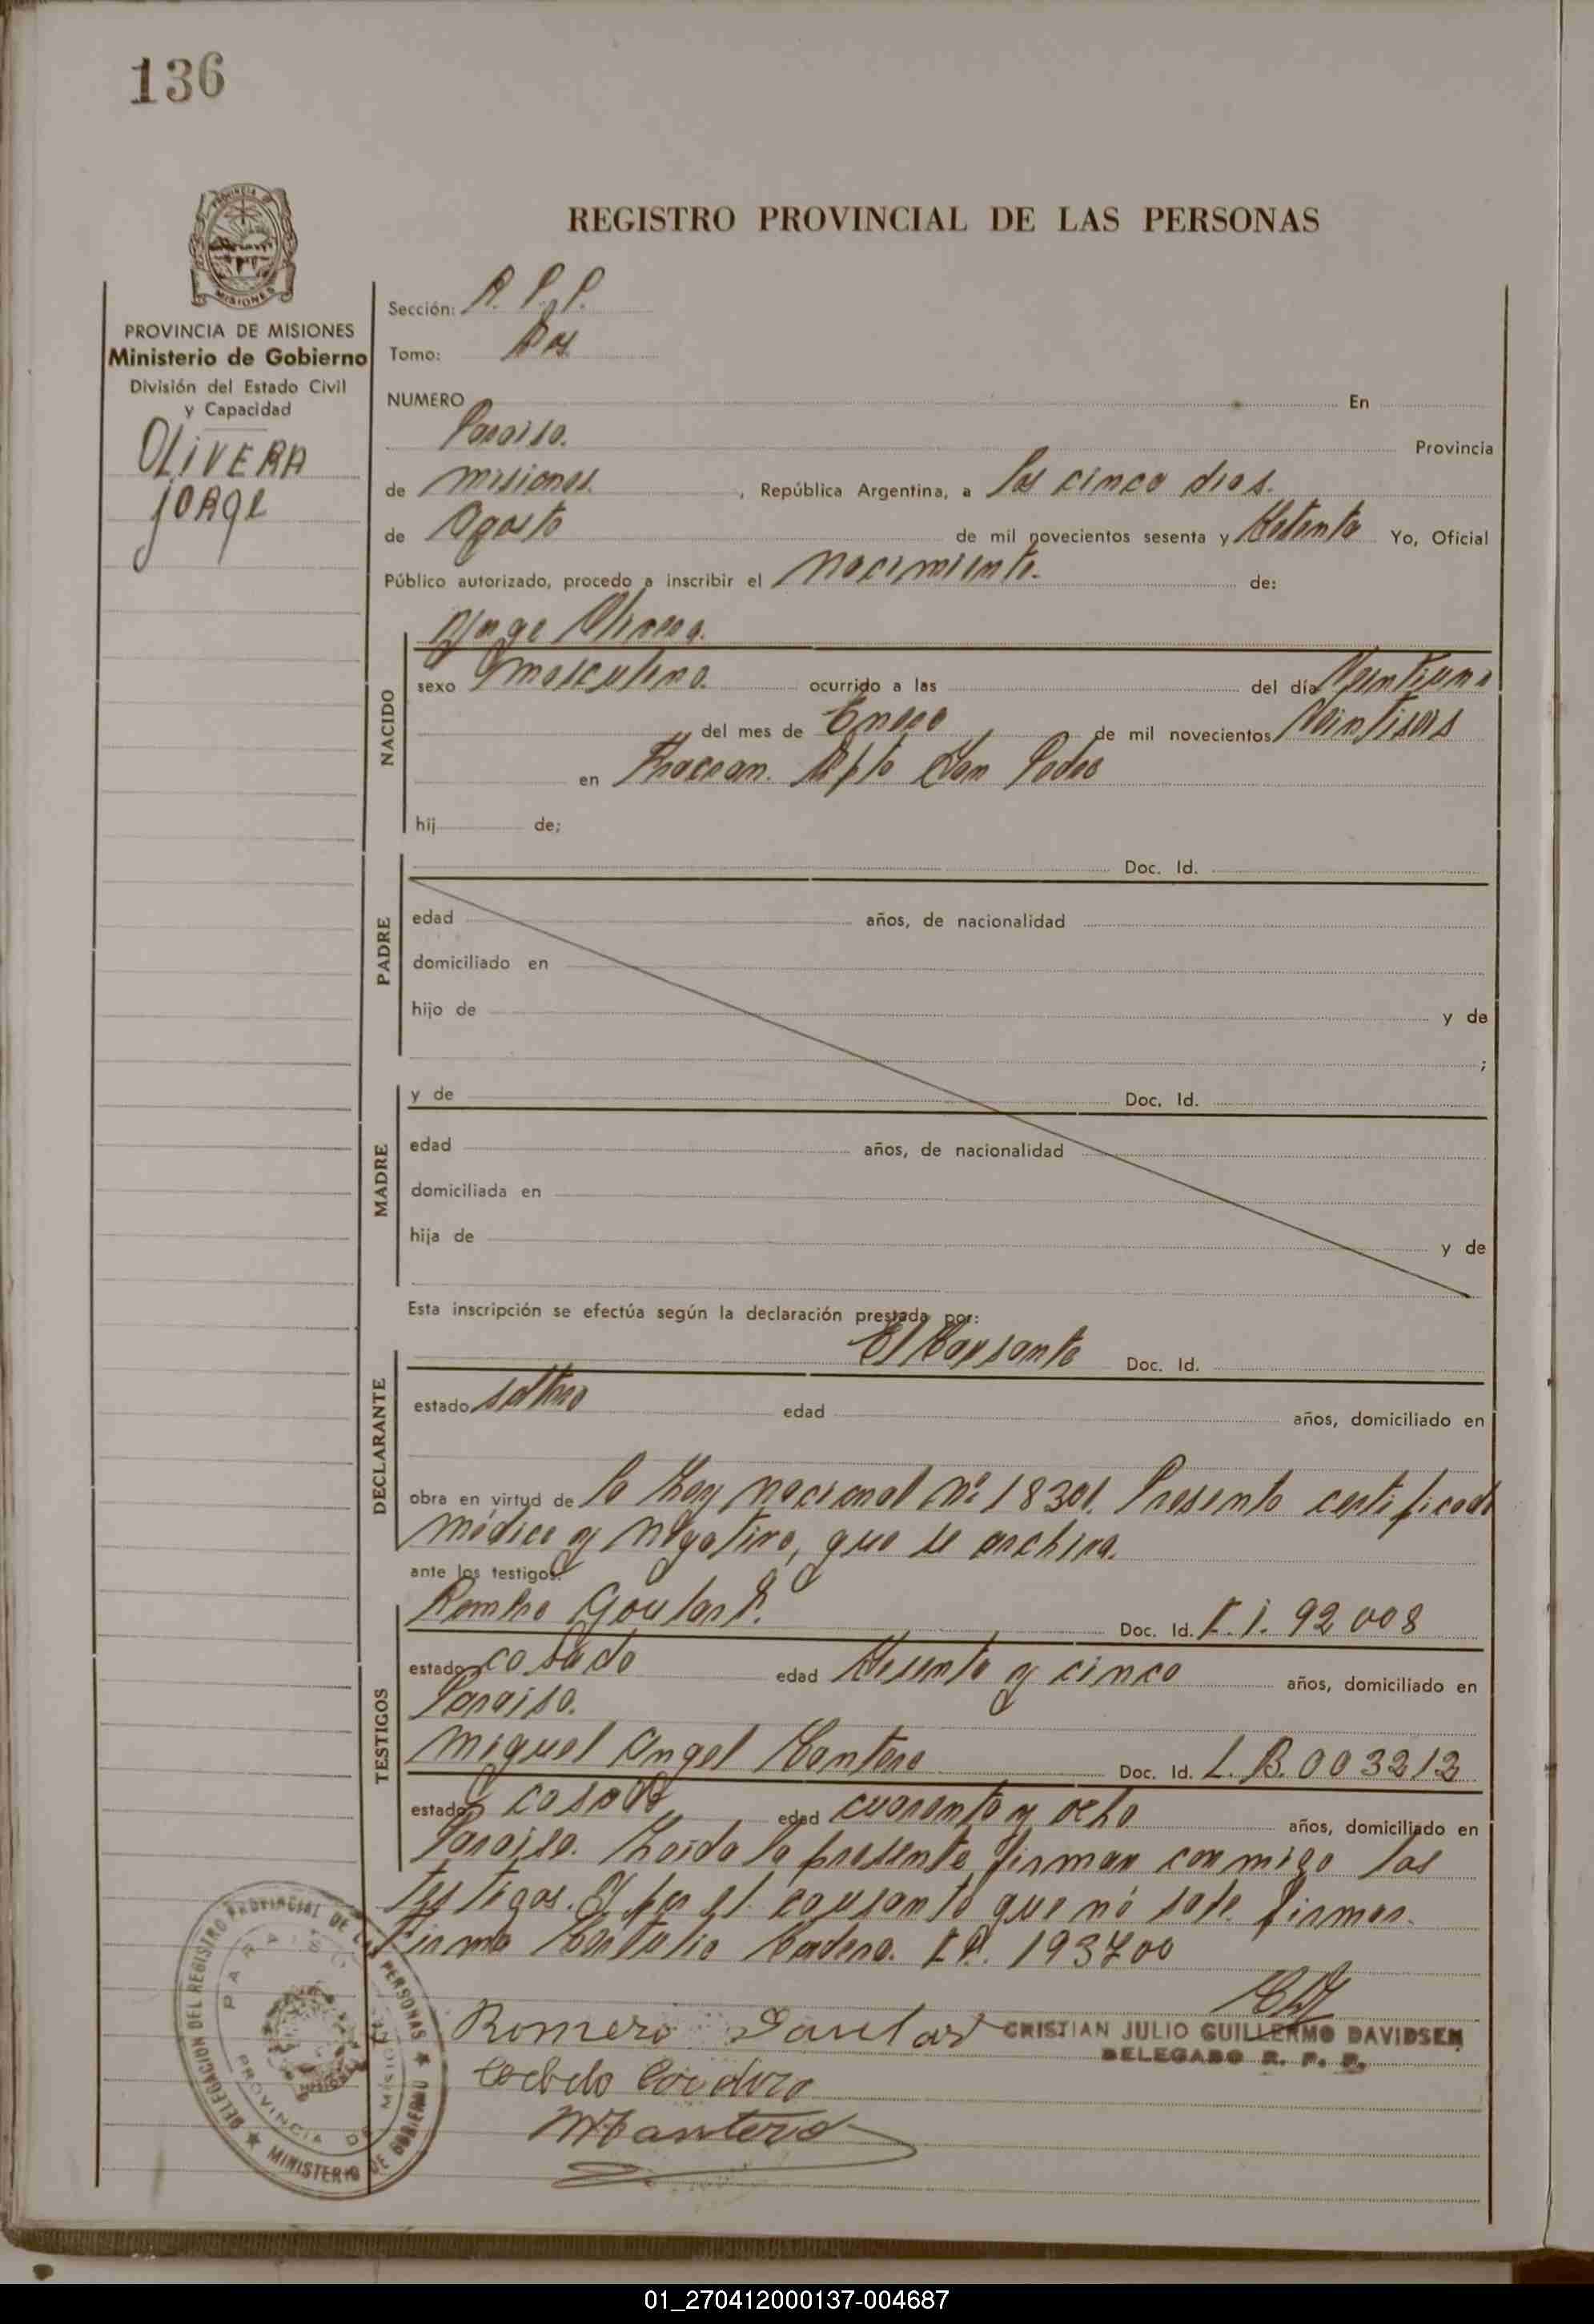 136
PROVINCIA
MISIONES
PROVINCIA DE MISIONES
Ministerio de Gobierno
División del Estado Civil
y Capacidad
OLIVERA
JORGE
REGISTRO PROVINCIAL DE LAS PERSONAS
Sección: R. P. P.
Tomo: Dos
NUMERO En
Paraiso. Provincia
de misiones. , República Argentina, a los cinco dias.
de Agosto de mil novecientos sesenta y Setenta Yo, Oficial
Público autorizado, procedo a inscribir el nacimiento. de:
Jorge Olivera.
NACIDO
sexo masculino. ocurrido a las del día Veintiuno
del mes de Enero de mil novecientos Veintiseis
en Dpto San Pedro
hij de;
PADRE
Doc. Id.
edad años, de nacionalidad
domiciliado en
hijo de y de
;
MADRE
y de Doc. Id.
edad años, de nacionalidad
domiciliada en
hija de y de
Esta inscripción se efectúa según la declaración prestada por:
DECLARANTE
El Causante Doc. Id.
estado soltero edad años, domiciliado en
obra en virtud de la Ley nacional nº 18301. Presento certificado
médico y negativo, que se archiva.
ante los testigos:
TESTIGOS
Goulart. Doc. Id. C. I. 92 008
estado casado edad Sesenta y cinco años, domiciliado en
Paraiso.
Miguel Angel Cantero Doc. Id. L. B. 003212
estado casado edad cuarenta y ocho años, domiciliado en
Paraiso. Leida la presente firman conmigo los
testigos. Y por el causante que no sabe firmar.
Firma Cordero. 193700
Romero Goulart
CRISTIAN JULIO GUILLERMO DAVIDSEN
DELEGADO R. P. P.
Cordero
M Cantero
DELEGACION DEL REGISTRO PROVINCIAL DE LAS PERSONAS
MINISTERIO DE GOBIERNO
PARAISO
PROVINCIA DE MISIONES
01_270412000137-004687